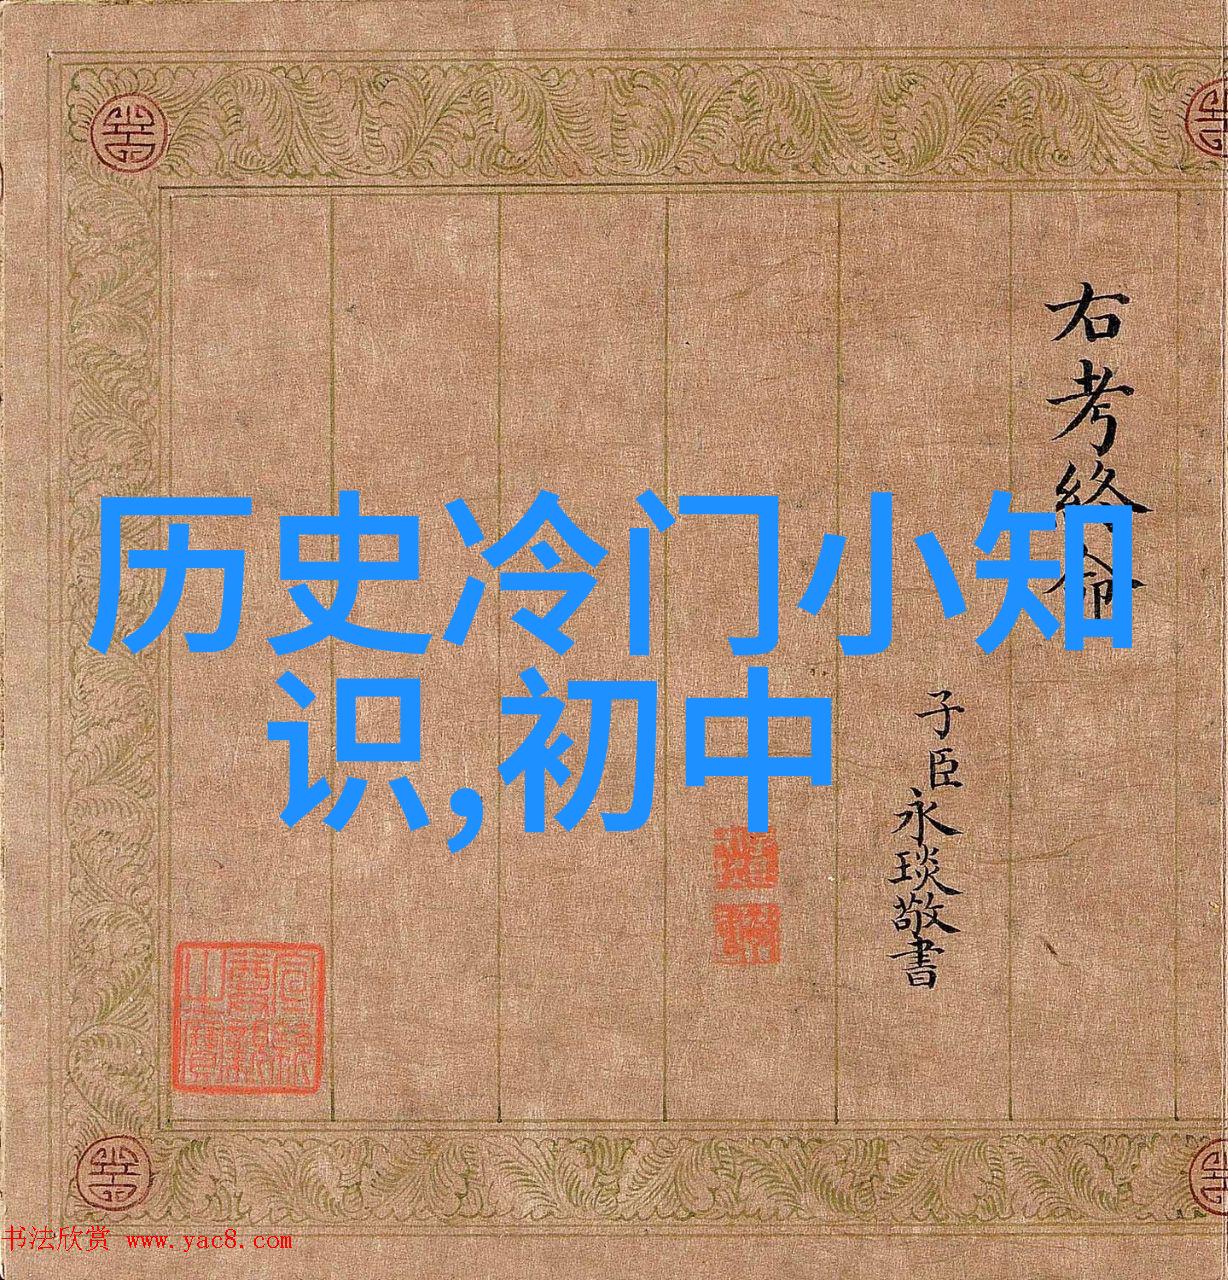 历史冷门小知
识,初中
右考终命
子臣永琰敬書
宣統御覽之寶
书法欣赏 www.yac8.com